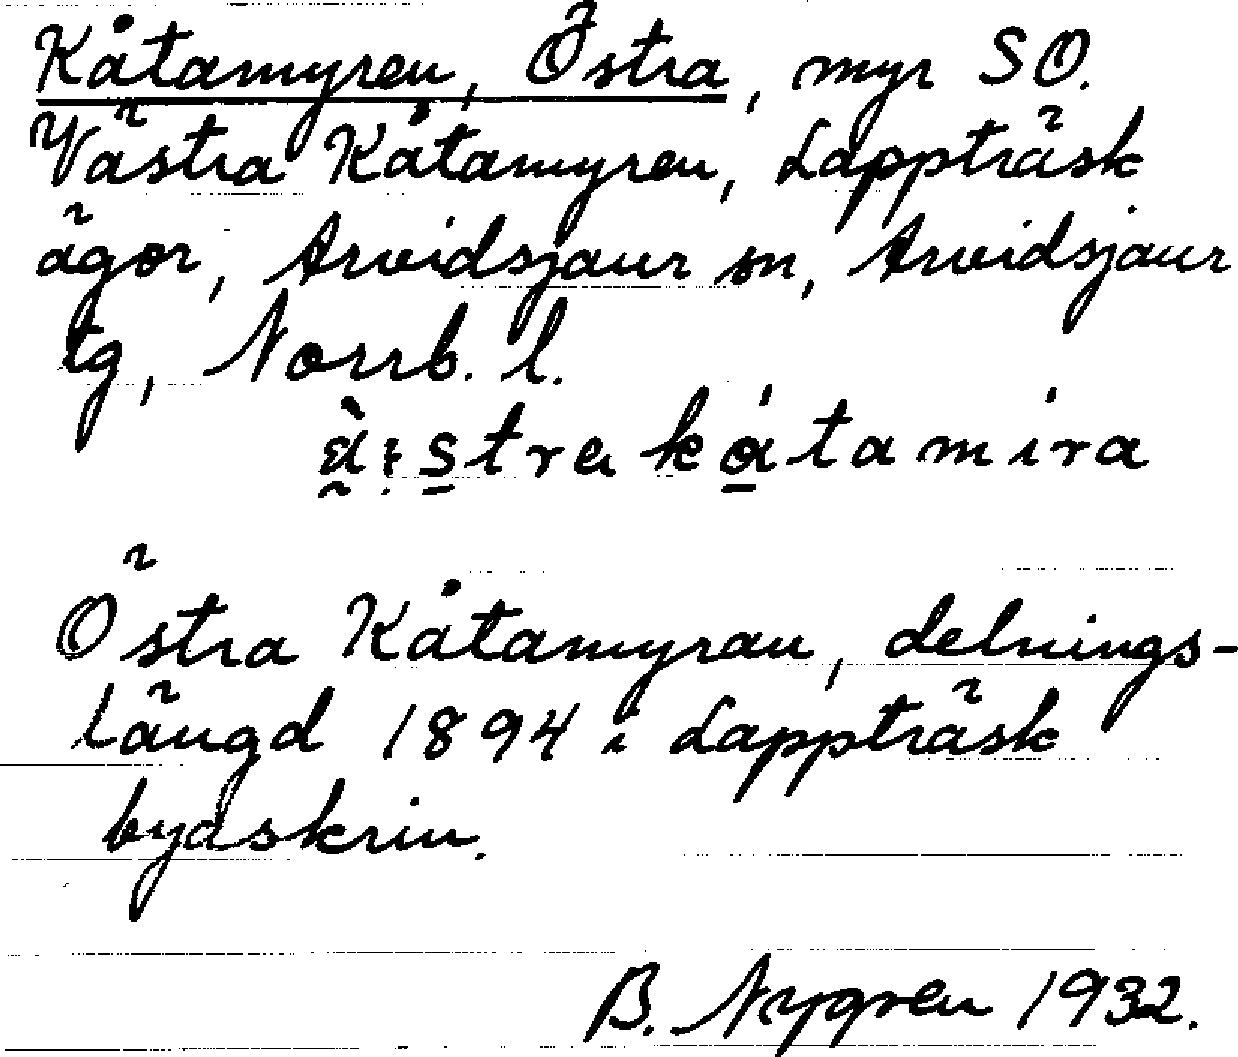 Kåtamyren, Östra, myr SO.
Västra Kåtamyren, Lappträsk
ägor, Arvidsjaur sn, Arvidsjaur
tg, Norrb. l.
Östra Kåtamyran, delnings-
längd 1894 i Lappträsk
byaskrin.
B. Nygren 1932.